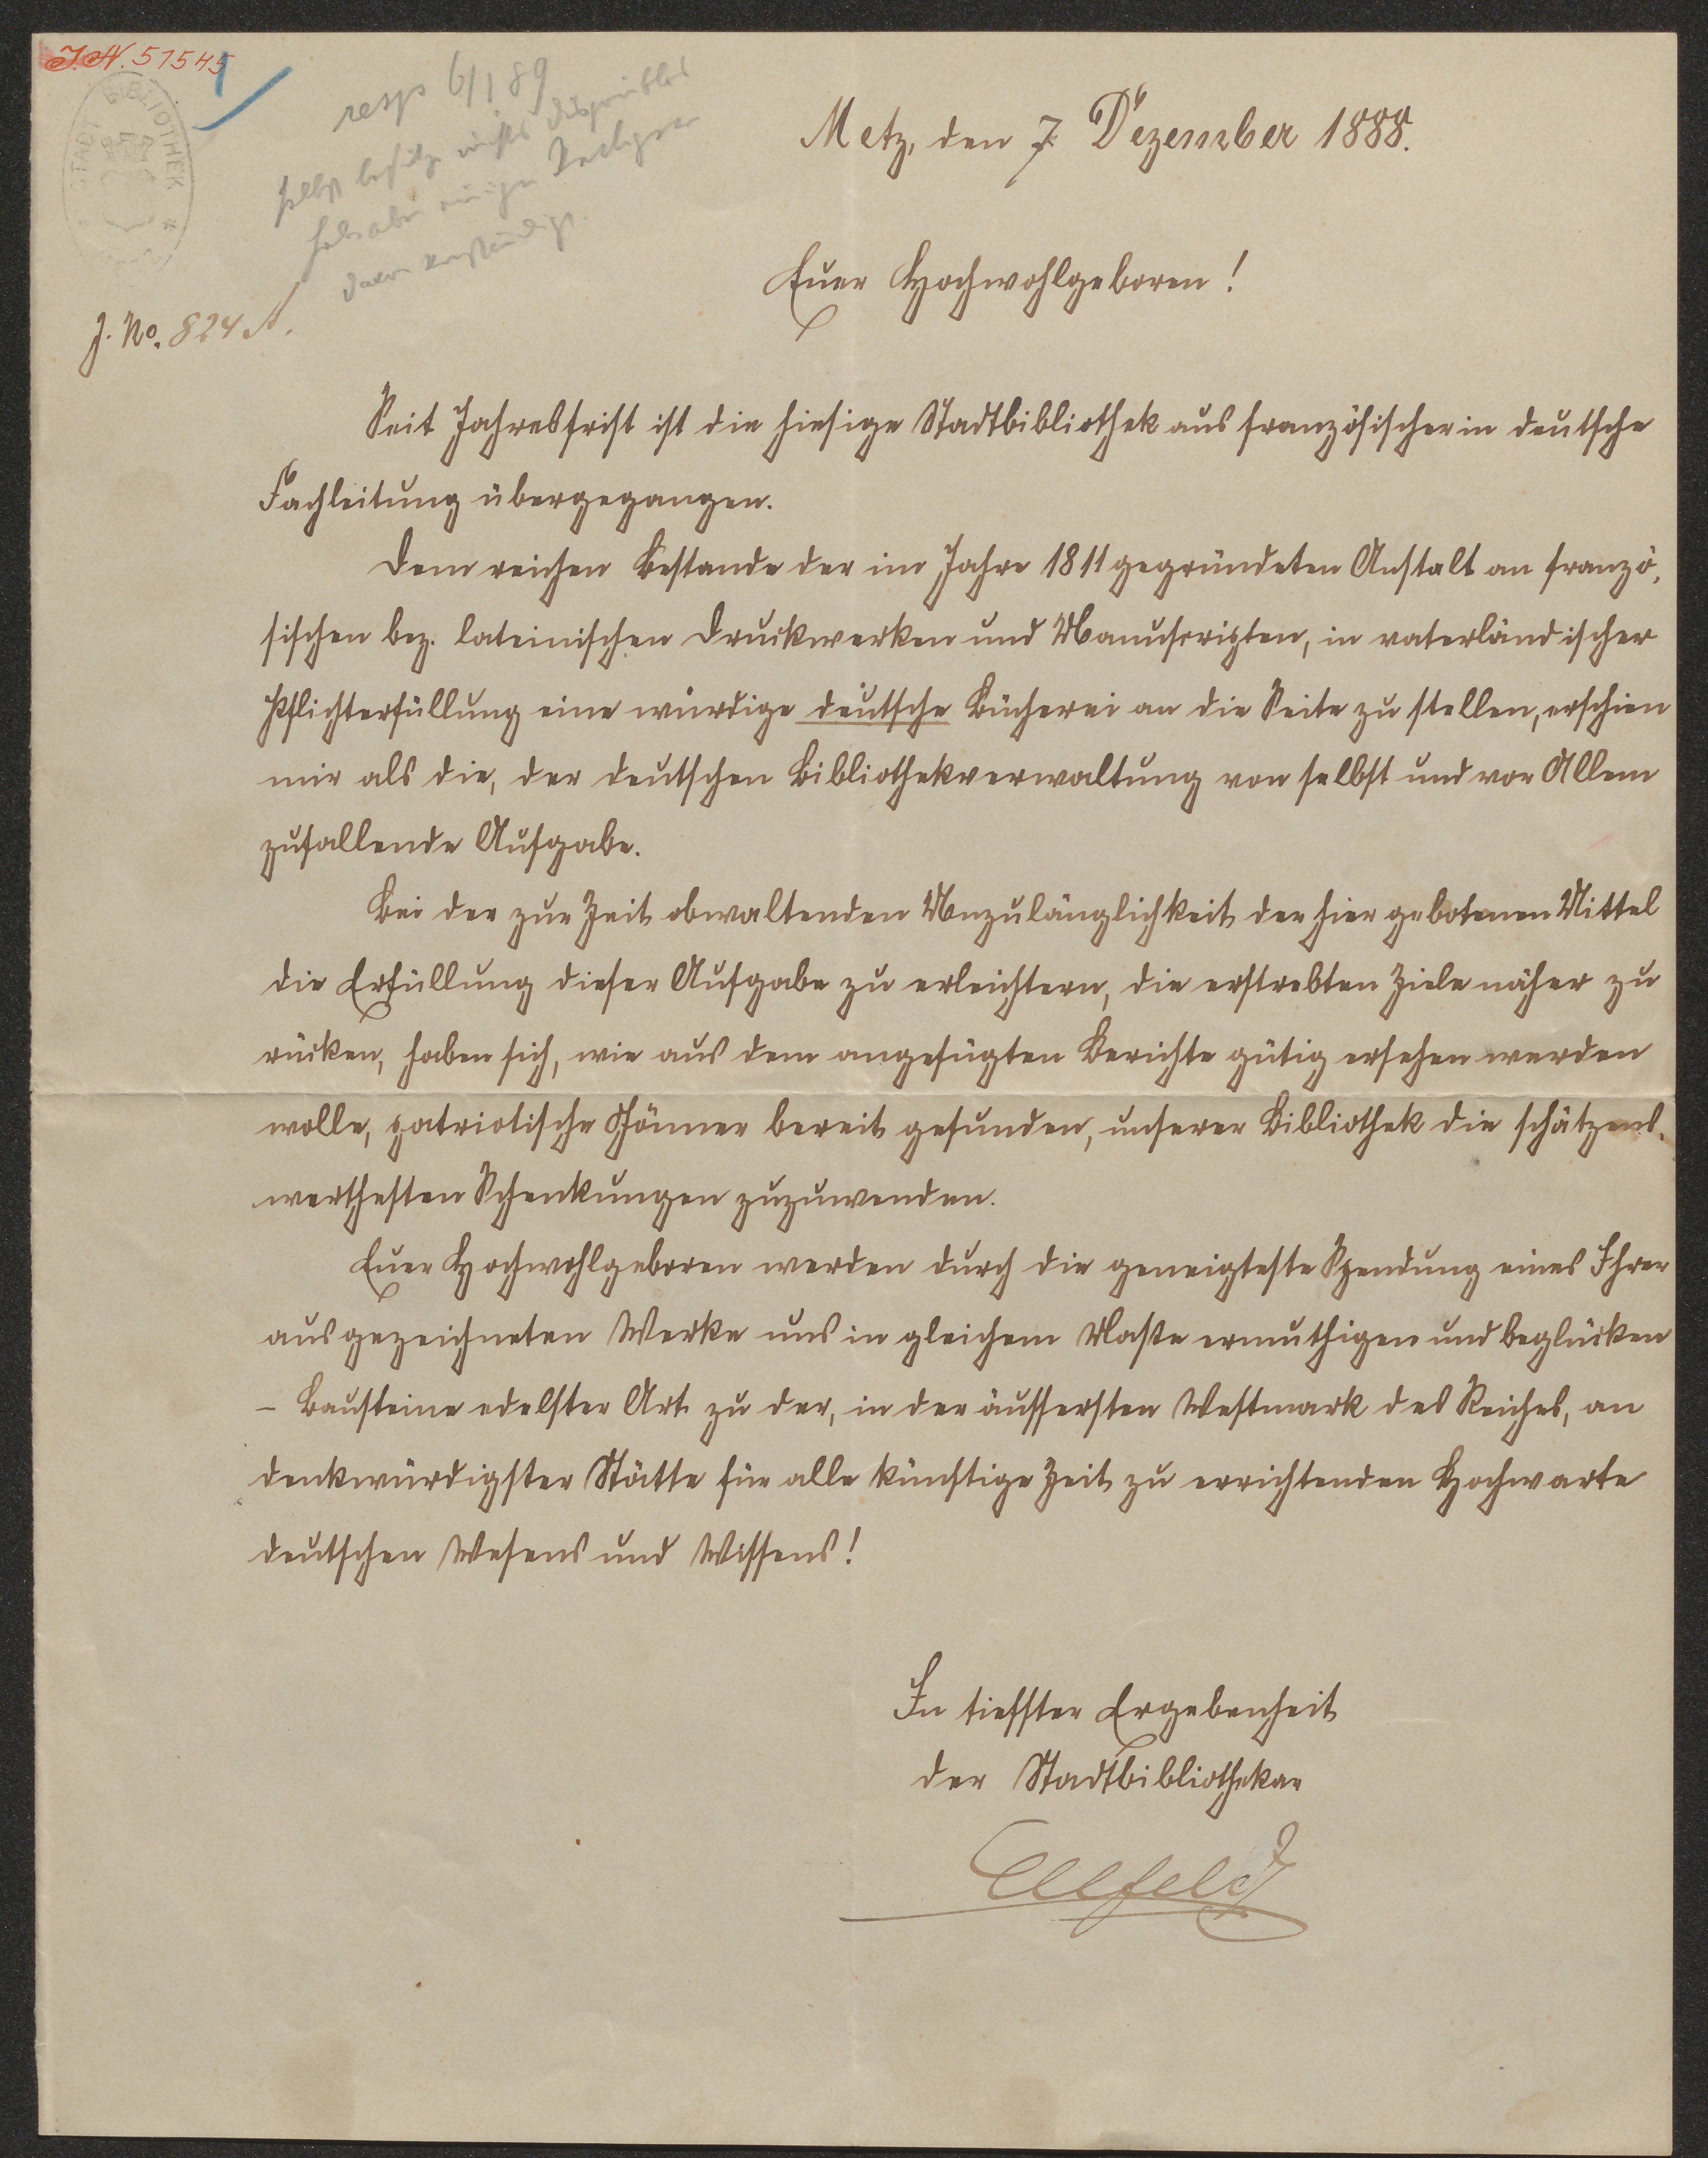 J.N. 51545
STADT BIBLIOTHEK
resp 6/1 89
selbst nichts disponibles
habe aber einige Kollegen
davon verständigt.
Metz, den 7. Dezember 1888.
Euer Hochwohlgeboren!
J. No. 824 A.
Seit Jahresfrist ist die hiesige Stadtbibliothek aus französischer in deutsche
Fachleitung übergegangen.
Dem reichen Bestande der im Jahre 1811 gegründeten Anstalt an franzö-
sischen bez. lateinischen Druckwerken und Manuscripten, in vaterländischer
Pflichterfüllung eine würdige deutsche Bücherei an die Seite zu stellen, erschien
mir als die, der deutschen Bibliothekverwaltung von selbst und vor Allem
zufallende Aufgabe.
Bei der zur Zeit obwaltenden Unzulänglichkeit der hier gebotenen Mittel
die Erfüllung dieser Aufgabe zu erleichtern, die erstrebten Ziele näher zu
rücken, haben sich, wie aus dem angefügten Berichte gütig ersehen werden
wolle, patriotische Gönner bereit gefunden, unserer Bibliothek die schätzens-
werthesten Schenkungen zuzuwenden.
Euer Hochwohlgeboren werden durch die geneigteste Spendung eines Ihrer
ausgezeichneten Werke uns in gleichem Maße ermuthigen und beglücken
– Bausteine edelster Art zu der, in der äussersten Westmark des Reiches, an
denkwürdigster Stätte für alle künftige Zeit zu errichtenden Hochwarte
deutschen Wesens und Wissens!
In tiefster Ergebenheit
der Stadtbibliothekar